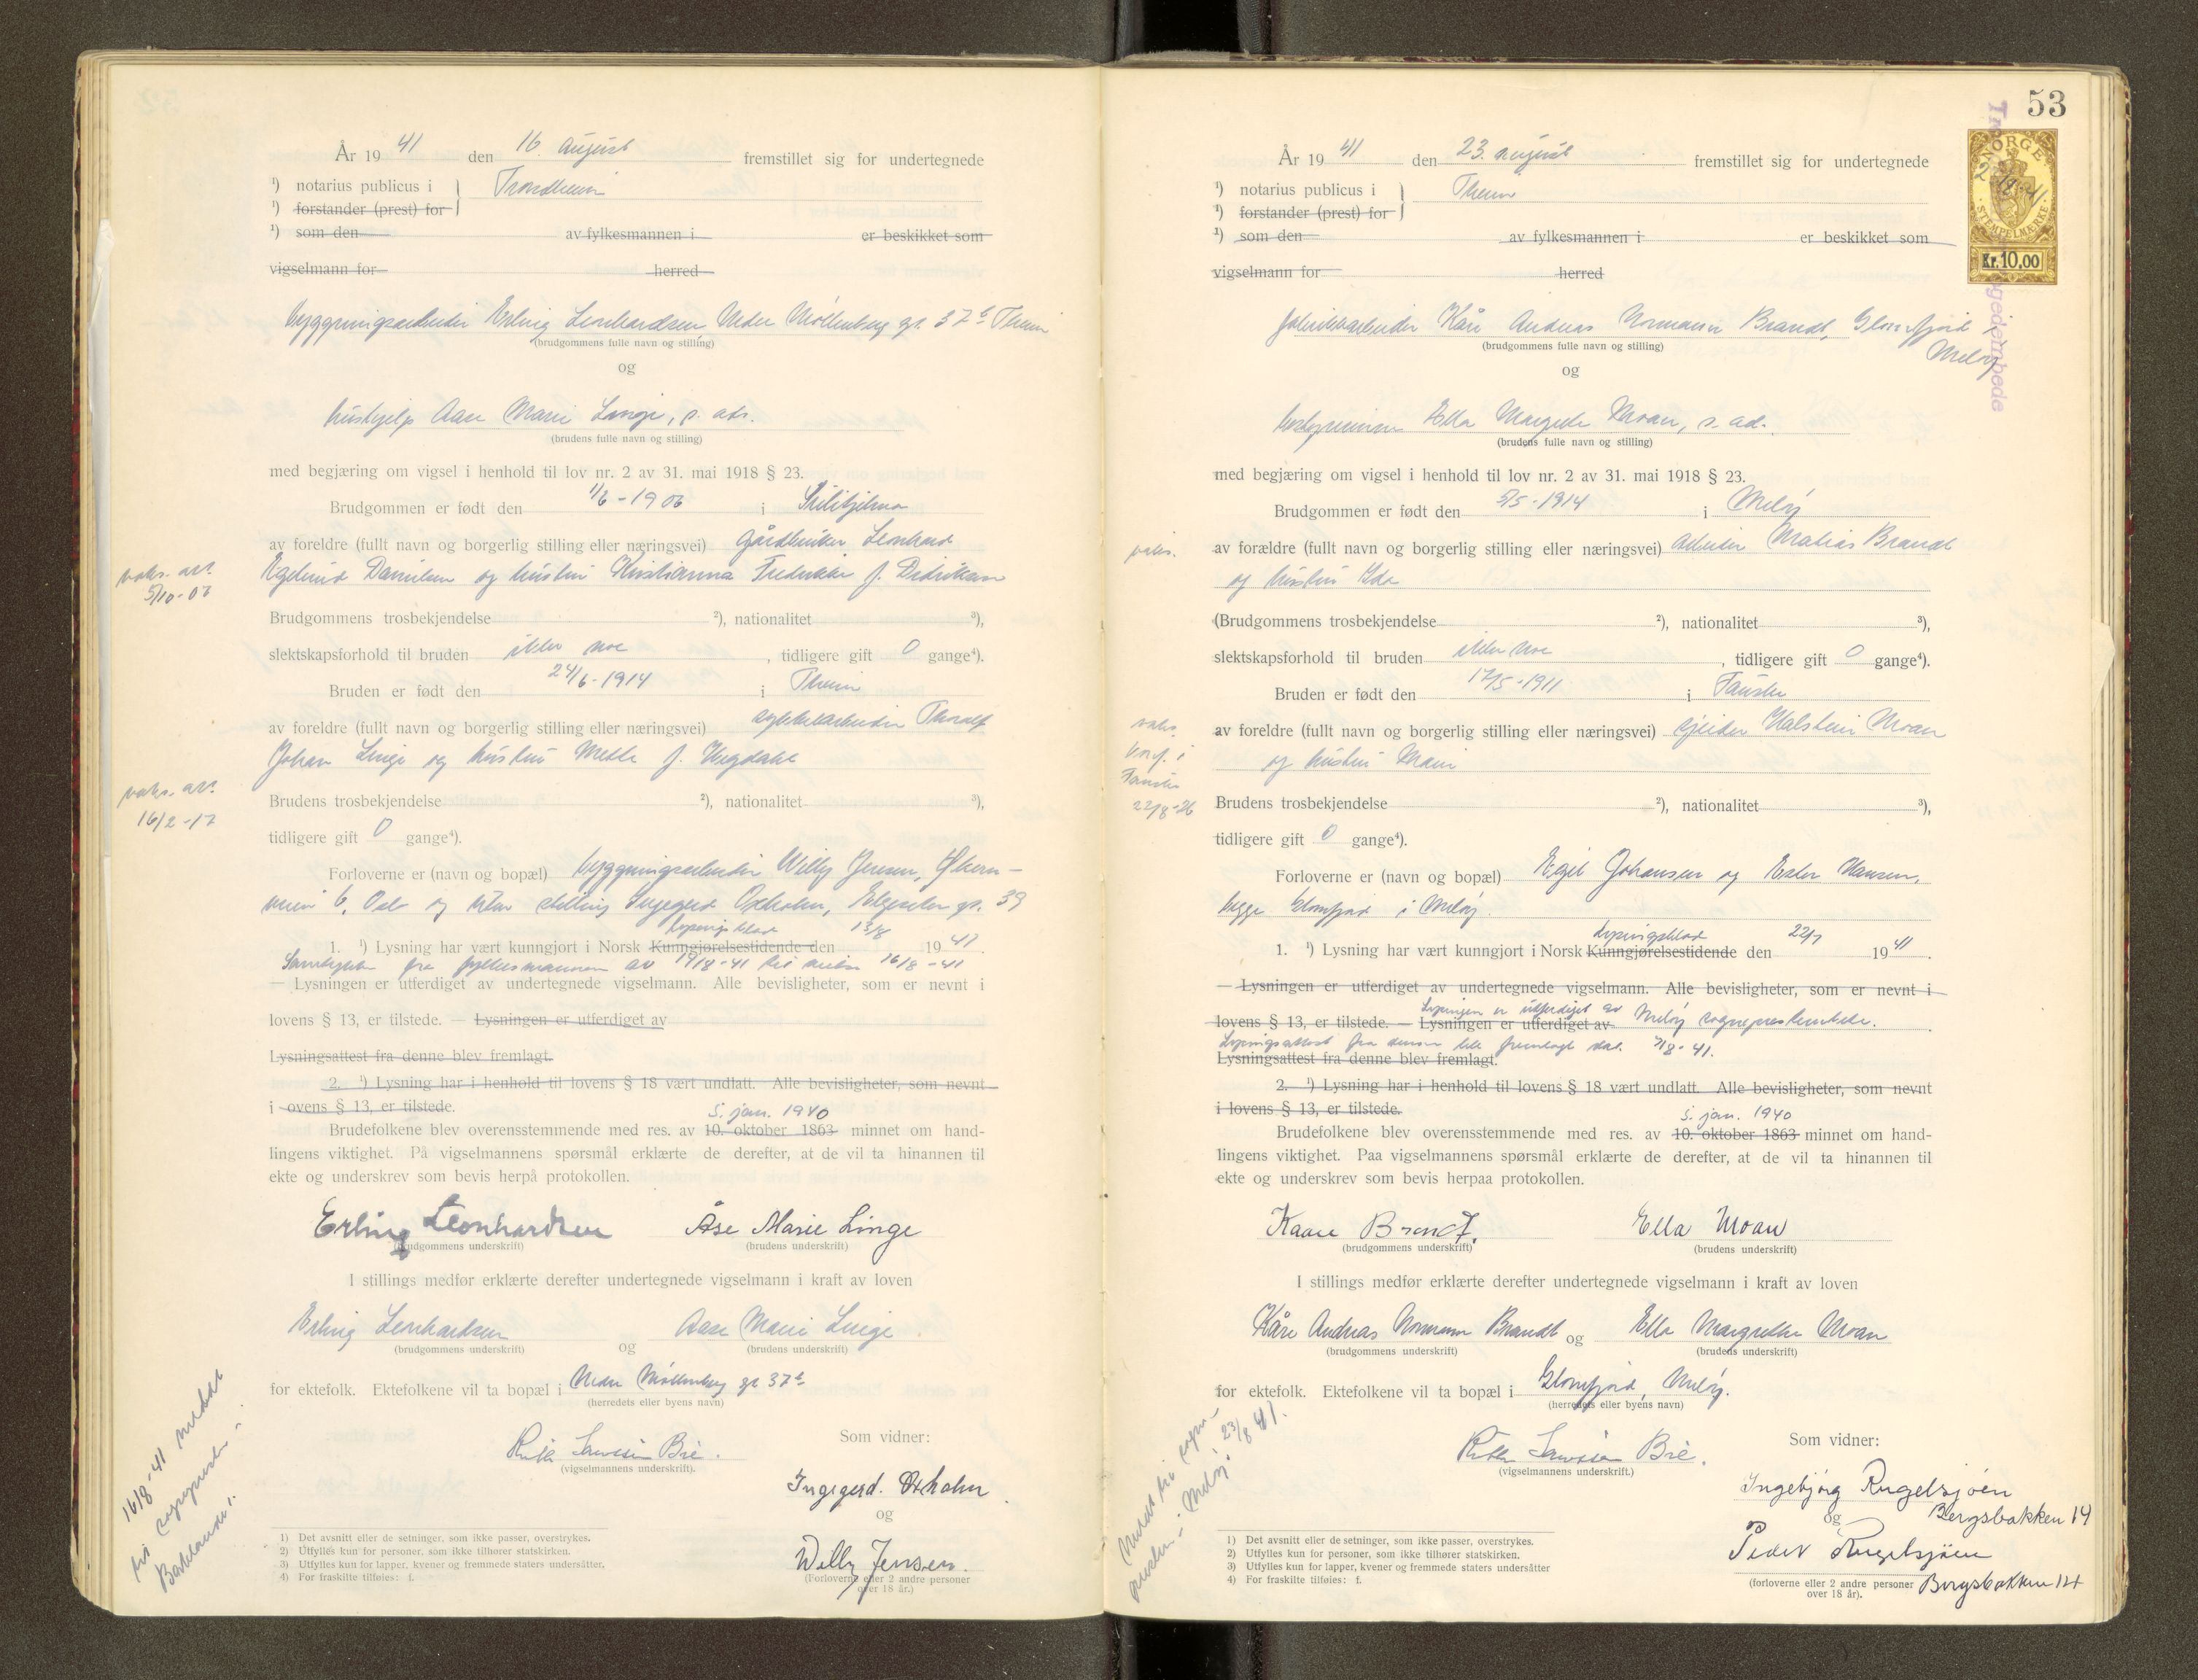 År 1941 den 16. august fremstillet sig for undertegnede
¹) notarius publicus i } Trondheim
¹) forstander (prest) for
¹) som den av fylkesmannen i er beskikket som
vigselmann for herred
byggningsarbeider Erling Leonhardsen Nedre Möllenberg gt. 37b Theim
(brudgommens fulle navn og stilling)
og
hushjelp Aase Marie Linge, s. ads.
(brudens fulle navn og stilling)
med begjæring om vigsel i henhold til lov nr. 2 av 31. mai 1918 § 23.
Brudgommen er født den 1/6-1906 i Sulitjelma
av foreldre (fullt navn og borgerlig stilling eller næringsvei) gårdbruker Leonhard
vaks. att. Danielsen og hustru Kristianna Fredrikke f. Didriksen
5/10-07
Brudgommens trosbekjendelse ²), nationalitet ³),
slektskapsforhold til bruden ikke noe, tidligere gift 0 gange⁴).
Bruden er født den 24/6-1914 i Theim
av foreldre (fullt navn og borgerlig stilling eller næringsvei) Thoralf
Johan Linge og hustru Mette f. Hegdahl
vaks. att.
16/2-17
Brudens trosbekjendelse ²), nationalitet ³),
tidligere gift 0 gange⁴).
Forloverne er (navn og bopæl) byggningsarbeider Willy Jensen, Økern-
veien 6, Oslo og uten stilling Ingegerd Oxholm, Elgeseter gt. 39
Lysningsblad
1. ¹) Lysning har vært kunngjort i Norsk Kunngjørelsestidende den 13/8 1941.
Samtykke fra fylkesmannen av 14/8-41 til vielse 16/8-41
— Lysningen er utferdiget av undertegnede vigselmann. Alle bevisligheter, som er nevnt i
lovens § 13, er tilstede. — Lysningen er utferdiget av
Lysningsattest fra denne blev fremlagt.
2. ¹) Lysning har i henhold til lovens § 18 vært undlatt. Alle bevisligheter, som nevnt
i lovens § 13, er tilstede.
5. jan. 1940
Brudefolkene blev overensstemmende med res. av 10. oktober 1863 minnet om hand-
lingens viktighet. På vigselmannens spørsmål erklærte de derefter, at de vil ta hinannen til
ekte og underskrev som bevis herpå protokollen.
Erling Leonhardsen Åse Marie Linge
(brudgommens underskrift) (brudens underskrift)
I stillings medfør erklærte derefter undertegnede vigselmann i kraft av loven
Erling Leonhardsen og Aase Marie Linge
(brudgommens underskrift) (brudens underskrift)
for ektefolk. Ektefolkene vil ta bopæl i Nedre Möllenberg gt 37b
(herredets eller byens navn)
Ruth Sewsiin Bie.
(vigselmannens underskrift).
Som vidner:
Ingegerd. Oxholm.
og
Willy Jensen.
(Forloverne eller 2 andre personer
over 18 år.)
16/8-41 meddelt
til sognepresten i
Baklandet.
1) Det avsnitt eller de setninger, som ikke passer, overstrykes.
2) Utfylles kun for personer, som ikke tilhører statskirken.
3) Utfylles kun for lapper, kvener og fremmede staters undersåtter.
4) For fraskilte tilføies: f.
53
NORGE
2/12-41
STEMPELMÆRKE
Kr. 10,00
År 1941 den 23. august fremstillet sig for undertegnede
¹) notarius publicus i } Theim
¹) forstander (prest) for
¹) som den av fylkesmannen i er beskikket som
vigselmann for herred
fabrikkarbeider Kåre Andreas Normann Brandt, Glomfjord i
Meløy
(brudgommens fulle navn og stilling)
og
bestyrerinne Ella Margrete Moan, s. ad.
(brudens fulle navn og stilling)
med begjæring om vigsel i henhold til lov nr. 2 av 31. mai 1918 § 23.
Brudgommen er født den 5/5-1914 i Meløy
vaks. av forældre (fullt navn og borgerlig stilling eller næringsvei) arbeider Matias Brandt
og hustru Ida
(Brudgommens trosbekjendelse ²), nationalitet ³),
slektskapsforhold til bruden ikke noe, tidligere gift 0 gange⁴).
Bruden er født den 17/5-1911 i Fauske
av foreldre (fullt navn og borgerlig stilling eller næringsvei) Halstein Moan
og hustru Marie
vaks.
konf. i
Fauske
22/8-26
Brudens trosbekjendelse ²), nationalitet ³),
tidligere gift 0 gange⁴).
Forloverne er (navn og bopæl) Egil Johansen og Ester Hansen,
begge Glomfjord i Meløy.
Lysningsblad
1. ¹) Lysning har vært kunngjort i Norsk Kunngjørelsestidende den 22/7 1941.
— Lysningen er utferdiget av undertegnede vigselmann. Alle bevisligheter, som er nevnt i
Lysningen er utferdiget av Meløy sogneprestembede.
lovens § 13, er tilstede. — Lysningen er utferdiget av
Lysningsattest fra denne ble fremlagt dat. 7/8-41.
Lysningsattest fra denne blev fremlagt.
2. ¹) Lysning har i henhold til lovens § 18 vært undlatt. Alle bevisligheter, som nevnt
i lovens § 13, er tilstede.
5. jan. 1940
Brudefolkene blev overensstemmende med res. av 10. oktober 1863 minnet om hand-
lingens viktighet. Paa vigselmannens spørsmål erklærte de derefter, at de vil ta hinannen til
ekte og underskrev som bevis herpaa protokollen.
Kaare Brandt. Ella Moan
(brudgommens underskrift) (brudens underskrift)
I stillings medfør erklærte derefter undertegnede vigselmann i kraft av loven
Kåre Andreas Normann Brandt og Ella Margrethe Moan
(brudgommens underskrift) (brudens underskrift)
for ektefolk. Ektefolkene vil ta bopæl i Glomfjord, Meløy.
(herredets eller byens navn)
Ruth Sewsiin Bie.
(vigselmannens underskrift.)
Som vidner:
Ingebjörg Rugelsjöen
Bergsbakken 14
og
Peder Rugelsjöen
Bergsbakken 14
(forloverne eller 2 andre personer
over 18 år).
Meldt til sogne-
presten i Meløy 23/8 41.
1) Det avsnitt eller de setninger, som ikke passer, overstrykes.
2) Utfylles kun for personer, som ikke tilhører statskirken.
3) Utfylles kun for lapper, kvener og fremmede staters undersåtter
4) For fraskilte tilføies: f.